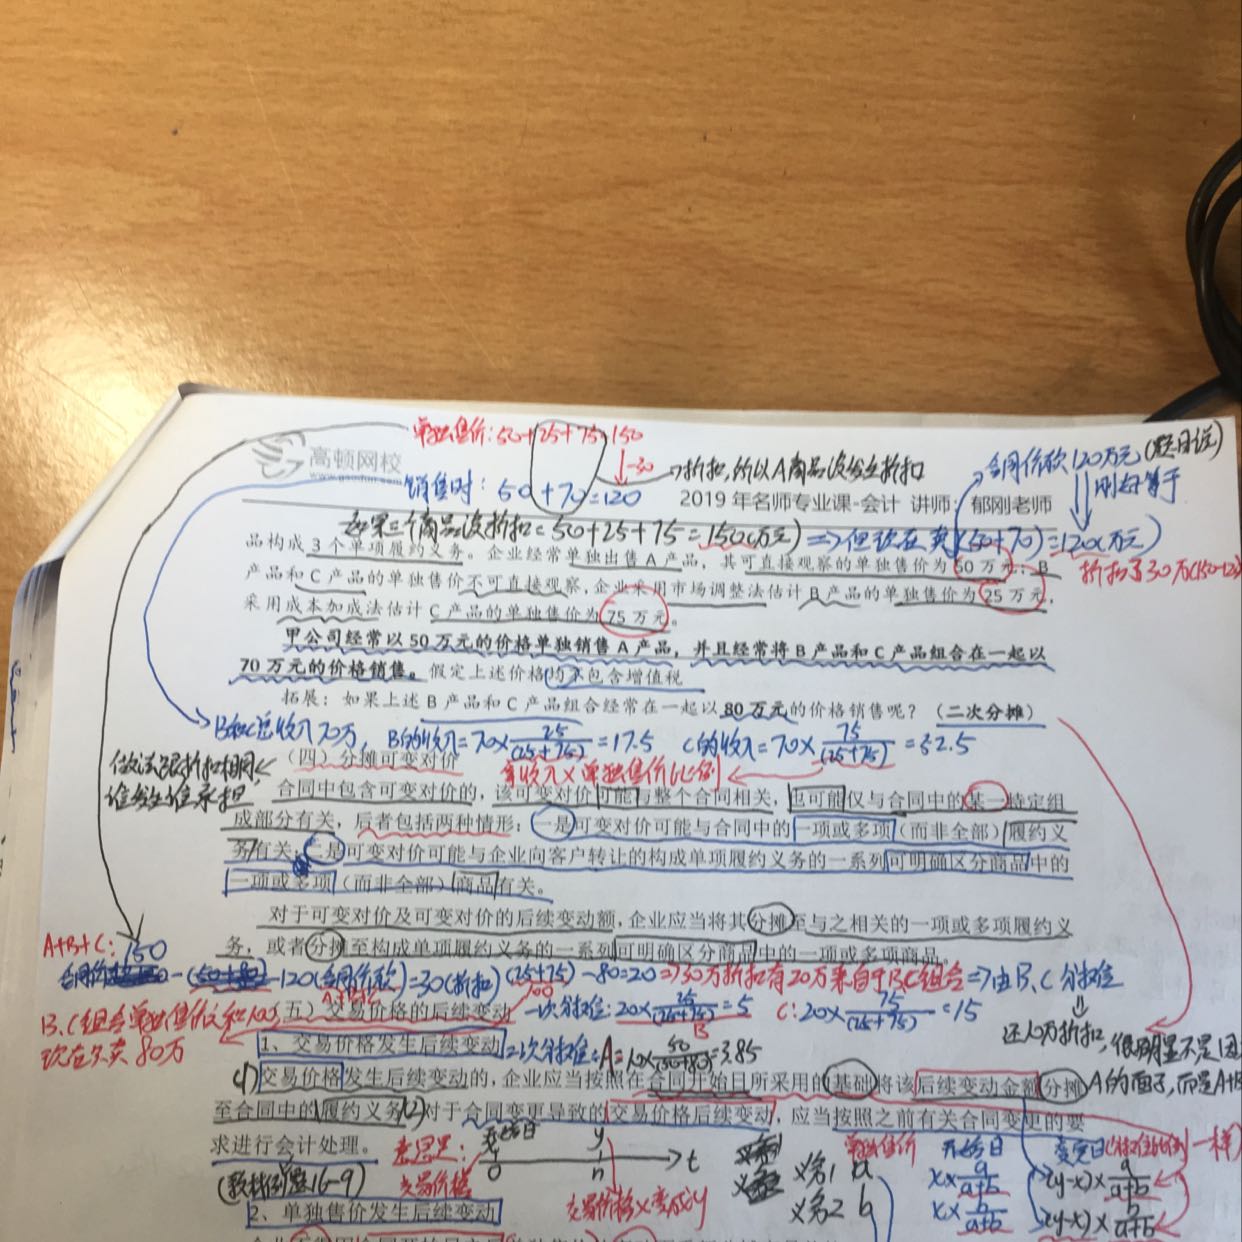 单独售价：50+25+75=150
-30
高顿网校
gaodun.com
销售时：50+70=120
→折扣，所以A商品没发生折扣
合同价款120万元（题目说）
刚好等于
2019 年名师专业课-会计 讲师： 郁刚老师
如果三个商品没折扣=50+25+75=150(万元)⇒但现在卖(50+70)=120(万元)
折扣了30万(150-120)
品构成 3 个单项履约义务。企业经常单独出售 A 产品，其可直接观察的单独售价为 50 万元；B
产品和 C 产品的单独售价不可直接观察，企业采用市场调整法估计 B 产品的单独售价为 25 万元，
采用成本加成法估计 C 产品的单独售价为 75 万元。
甲公司经常以 50 万元的价格单独销售 A 产品，并且经常将 B 产品和 C 产品组合在一起以
70 万元的价格销售。假定上述价格均不包含增值税
拓展：如果上述 B 产品和 C 产品组合经常在一起以 80 万元的价格销售呢？（二次分摊）
B和C总收入70万，B的收入=70×25/(25+75)=17.5 C的收入=70×75/(25+75)=52.5
做法跟折扣相同
谁发生谁承担
（四）分摊可变对价
总收入×单独售价比例
合同中包含可变对价的，该可变对价可能与整个合同相关，也可能仅与合同中的某一特定组
成部分有关，后者包括两种情形：一是可变对价可能与合同中的一项或多项（而非全部）履约义
务有关；二是可变对价可能与企业向客户转让的构成单项履约义务的一系列可明确区分商品中的
一项或多项（而非全部）商品有关。
对于可变对价及可变对价的后续变动额，企业应当将其分摊至与之相关的一项或多项履约义
务，或者分摊至构成单项履约义务的一系列可明确区分商品中的一项或多项商品。
A+B+C：150
-120(合同价款)=30(折扣) (25+75)-80=20⇒30万折扣有20万来自于BC组合⇒由B、C分摊
100
B、C组合单独售价之和100
现在只卖80万
（五）交易价格的后续变动
一次分摊：20×25/(25+75)=5 C：20×75/(25+75)=15
B
还10万折扣，很明显不是因
A的面子，而是A+B
1、交易价格发生后续变动
二次分摊：A=10×50/(50+80)=3.85
(1)交易价格发生后续变动的，企业应当按照在合同开始日所采用的基础将该后续变动金额分摊
至合同中的履约义务(2)对于合同变更导致的交易价格后续变动，应当按照之前有关合同变更的要
求进行会计处理。
意思是：
开始日 y
0 n t
交易价格x
交易价格x变成y
(教材例题16-9)
单独售价 开始日 变更日(分摊比例一样)
义务1 a x×a/(a+b) (y-x)×a/(a+b)
义务2 b x×b/(a+b) (y-x)×b/(a+b)
2、单独售价发生后续变动